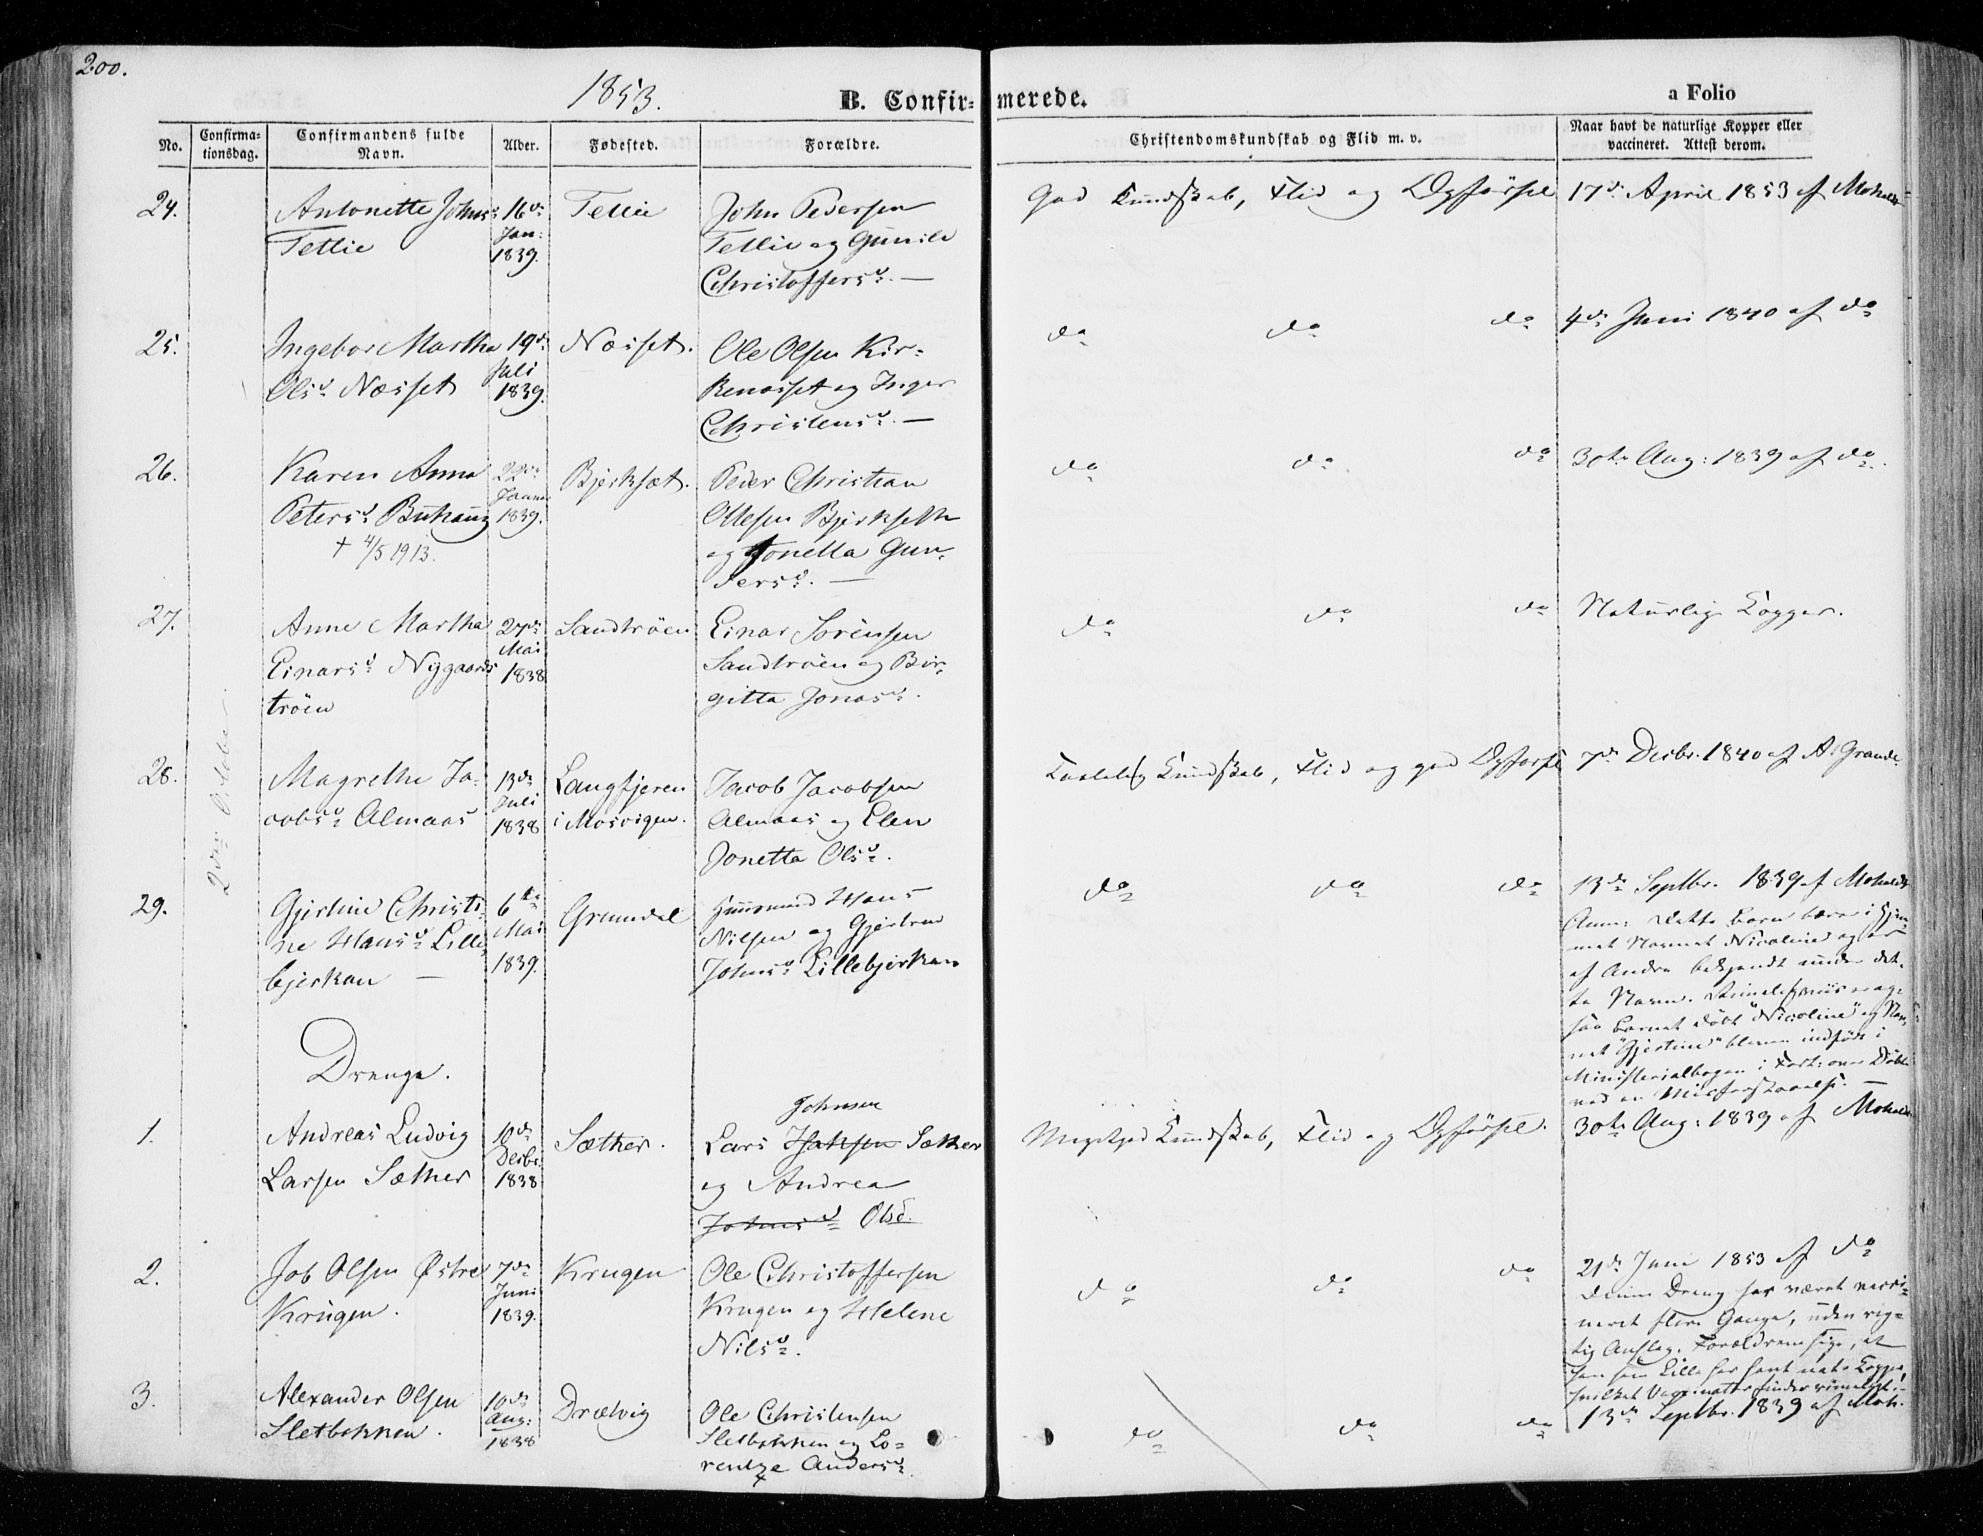 200.
1853.
B. Confir-
merede.
a Folio
No.
Confirma-
tionsdag.
Confirmandens fulde
Navn.
Alder.
Fødested.
Forældre.
Christendomskundskab og Flid m. v.
Naar havt de naturlige Kopper eller
vaccineret. Attest derom.
2den October
24.
Antonette Johns:
Tetlie
16de
Jan:
1839.
Tetlie
John Pedersen
Tetlie og Gunild
Christoffersd. —
God Kundskab, Flid og Opførsel
17de April 1853 af Moholdt
25.
Ingebor Martha
Olsd. Næsset
19de
Juli
1839.
Næsset.
Ole Olsen Kir-
kenæsset og Inger
Christensd. —
do do do
4de Juni 1840 af do
26.
Karen Anna
Petersd. Buhaug
† 4/5 1913.
22de
Janua
1839.
Bjerksæt.
Peder Christian
Ollesen Bjerkseth
og Jonetta Gun-
dersd. —
do do do
30te Aug: 1839 af do.
27.
Anne Martha
Einarsd. Nygaards
tröen
27de
Mai
1838
Sandtröen
Einar Sörensen
Sandtröen og Bir-
gitta Jonasd.
do do do
Naturlige Kopper.
28.
Magrethe Ja-
cobsd. Almaas
13de
Juli
1838
Langfjeren
i Mosvigen.
Jacob Jacobsen
Almaas og Elen
Jonetta Olsd.
Taalelig Kundskab, Flid og god Opførsel
7de Decbr. 1840 af A. Grande
29.
Gjertine Christi-
ne Hansd. Lille
bjerkan —
6te
Mai
1839.
Grundal
Huusmand Hans
Nilsen og Gjertrud
Johnsd. Lillebjerkan
do do do
13de Septbr. 1839 af Moholdt
Anm: Dette Barn bærer i Hjem-
met Navnet Nicoline og er
af Andre bekjendt under det-
te Navn. Rimeligviis er og-
saa Barnet døbt "Nicoline" og Nav-
net "Gjertine" bleven indført i
Ministerialbogen i Fort: over Døbte
ved en Misforstaaelse. —
Drenge.
1.
Andreas Ludvig
Larsen Sæther
10de
Decbr.
1838
Sæther.
Johnsen
Lars Sæther
og Andrea
Johnsd. Olsd.
Meget god Kundskab, Flid og Opførsel.
30te Aug: 1839 af Moholdt
2.
Job Olsen Østre
Krügen.
7de
Juni
1839.
Krugen
Ole Christoffersen
Krugen og Helene
Nilsd.
do do do
21de Juni 1853 af do
Denne Dreng har været vacci-
neret flere Gange, uden rig-
tig Anslag. Forældrene sige, at
han som Lille har havt nat. Kopper,
hvilket Vaccinator finder rimeligt. —
3.
Alexander Olsen
Sletbakken.
10de
Aug:
1838
Drætvig
Ole Christensen
Sletbakken og Lo-
rentze Andersd.
do do do
13de Septbr. 1839 af Moh.